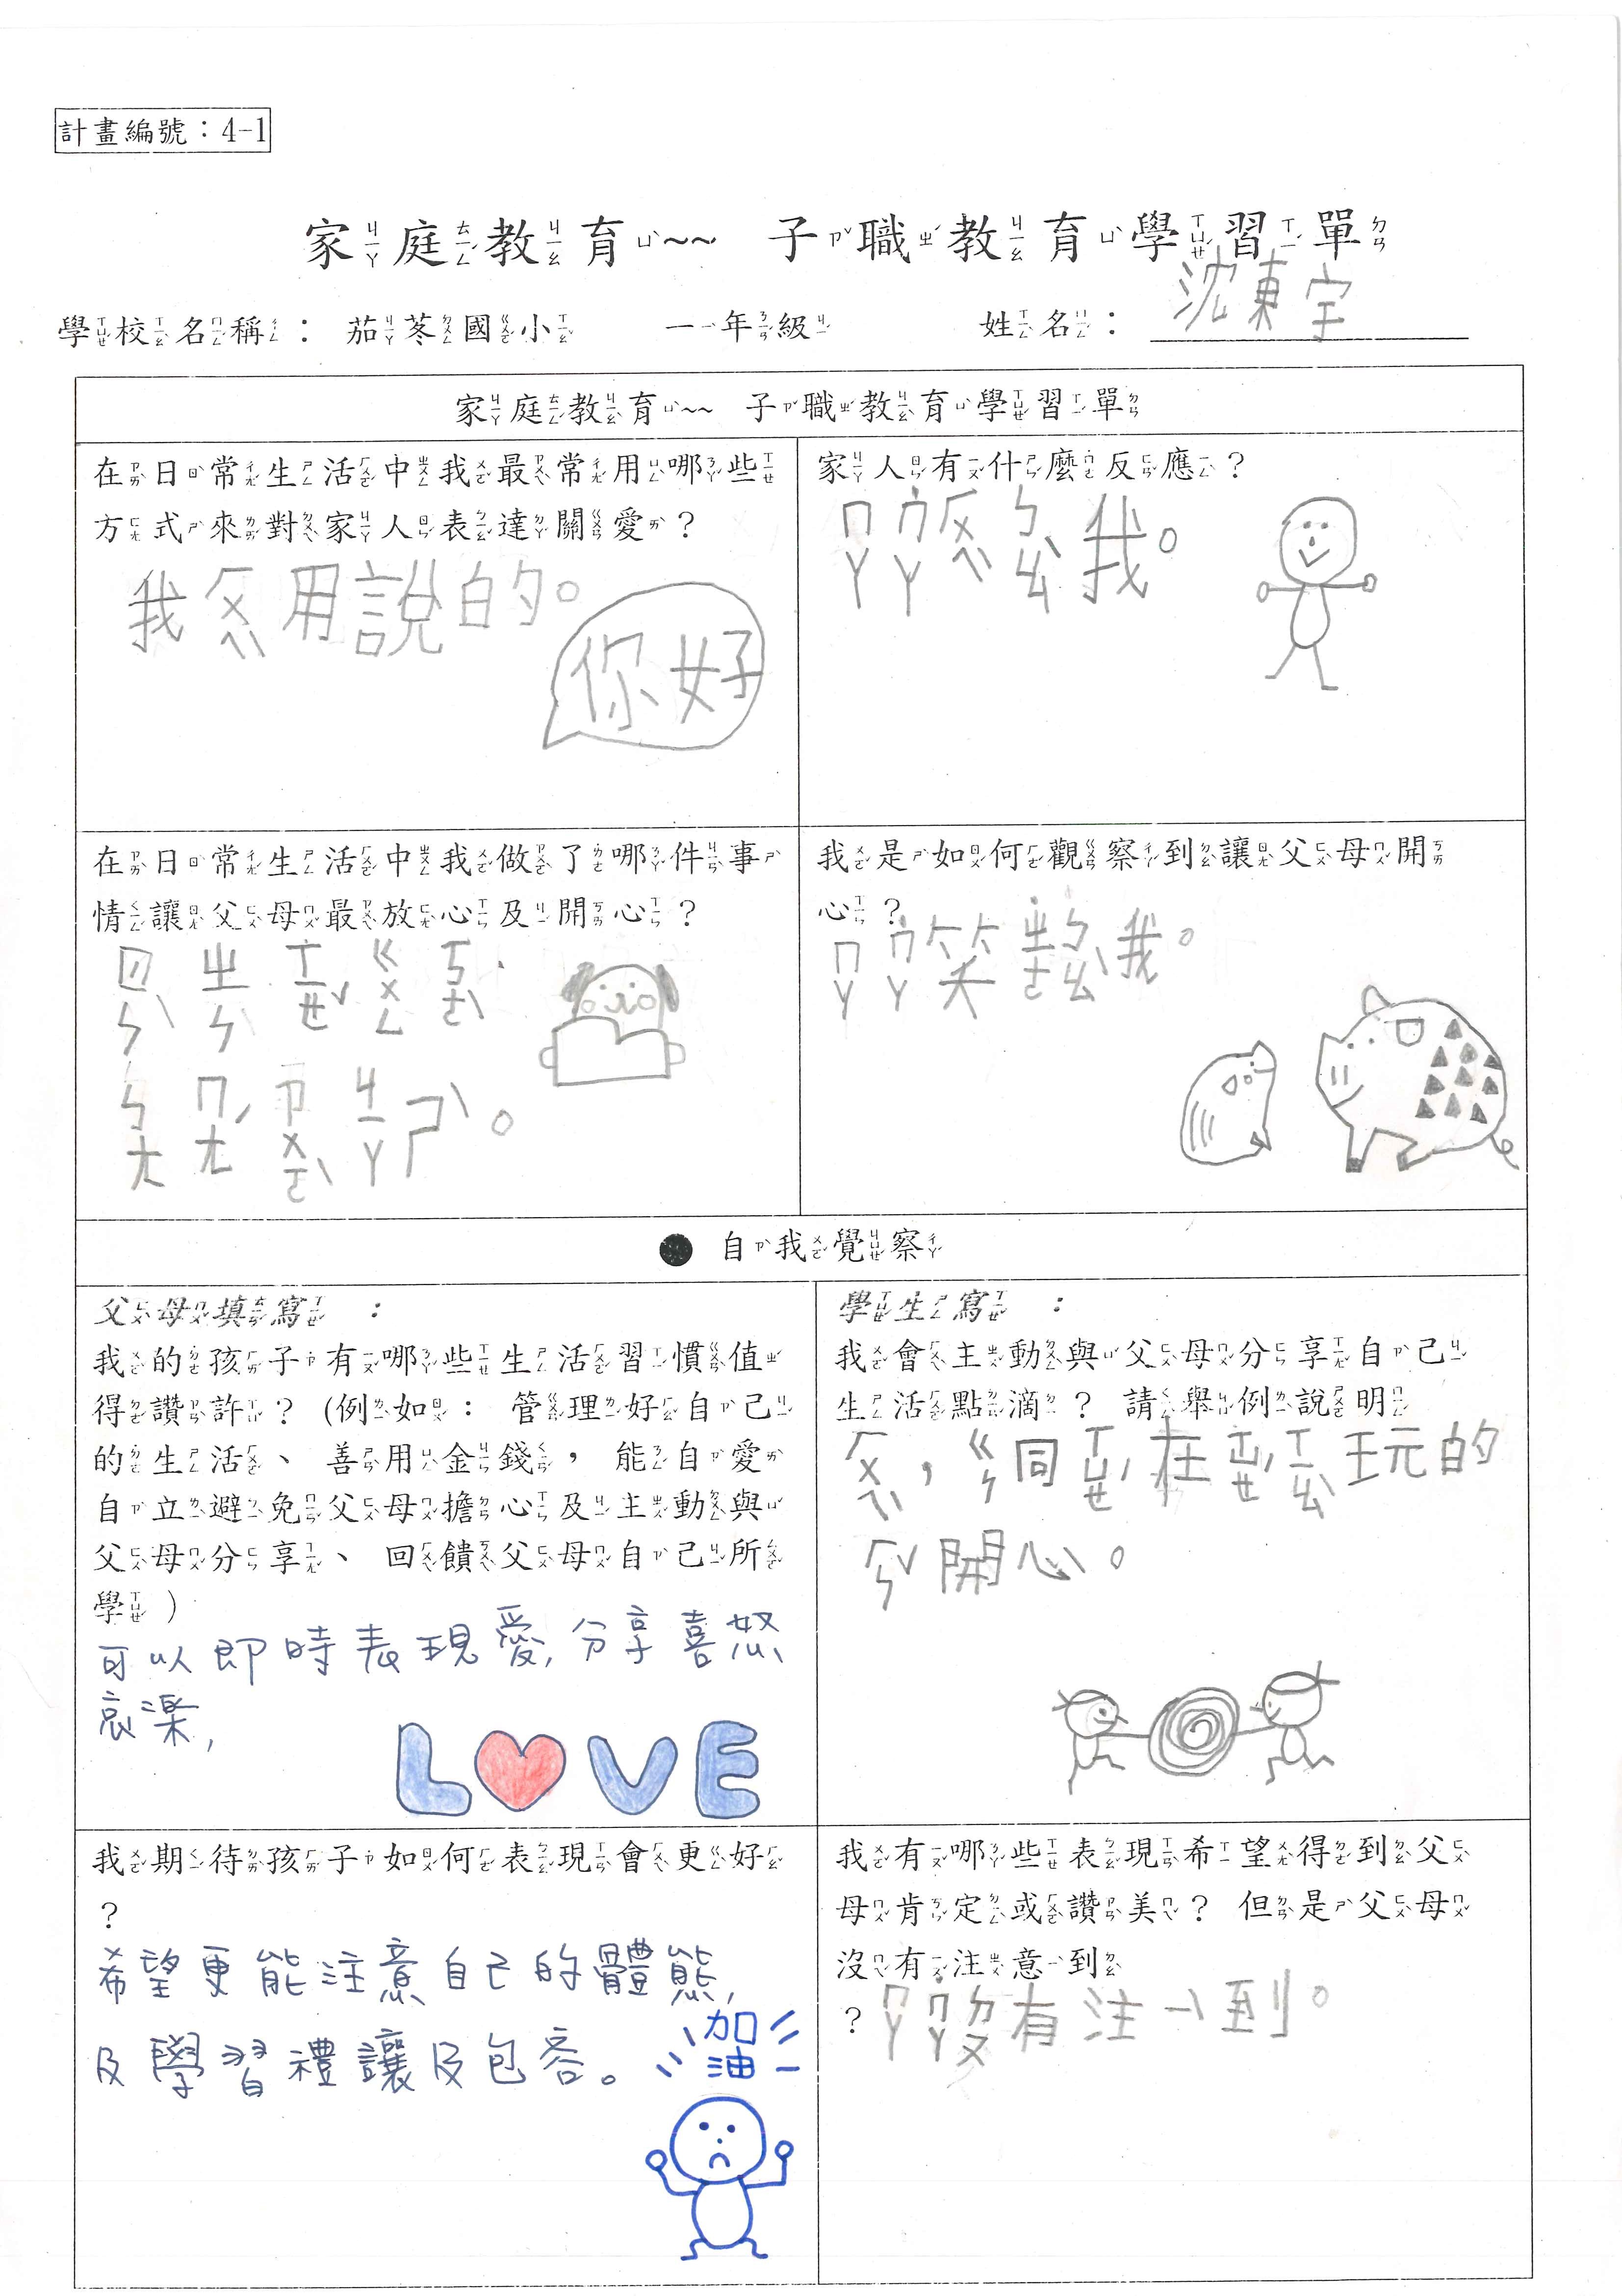 計畫編號：4-1
家庭教育~~ 子職教育學習單
學校名稱： 茄苳國小 一年級 姓名： 沈東宇
家庭教育~~ 子職教育學習單
在日常生活中我最常用哪些
方式來對家人表達關愛？
我ㄏㄨㄟˋ用說的。
你好
家人有什麼反應？
ㄇㄚㄇㄚ˙ㄏㄨㄟˋㄅㄠˋ我。
在日常生活中我做了哪件事
情讓父母最放心及開心？
ㄖㄣˋ ㄓㄣ ㄒㄧㄝˇ ㄍㄨㄥ ㄎㄜˋ
ㄅㄤ ㄇㄤˊ ㄗㄨㄛˋ ㄐㄧㄚ ㄕˋ。
我是如何觀察到讓父母開
心？
ㄇㄚㄇㄚ˙笑ㄓㄜ˙ㄅㄠˋ我。
自我覺察
父母填寫 ：
我的孩子有哪些生活習慣值
得讚許？（例如： 管理好自己
的生活、 善用金錢， 能自愛
自立避免父母擔心及主動與
父母分享、 回饋父母自己所
學）
可以即時表現愛,分享喜怒
哀樂,
LOVE
學生寫 ：
我會主動與父母分享自己
生活點滴？ 請舉例說明
ㄏㄨㄟˋ，ㄍㄣ同ㄒㄩㄝˊ在ㄒㄩㄝˊㄒㄧㄠˋ玩的
ㄏㄣˇ開心。
我期待孩子如何表現會更好
？
希望更能注意自己的體態,
及學習禮讓及包容。
加
油
我有哪些表現希望得到父
母肯定或讚美？ 但是父母
沒有注意到
？
ㄇㄚㄇㄚ˙ㄉㄡ有注ㄧˋ到。